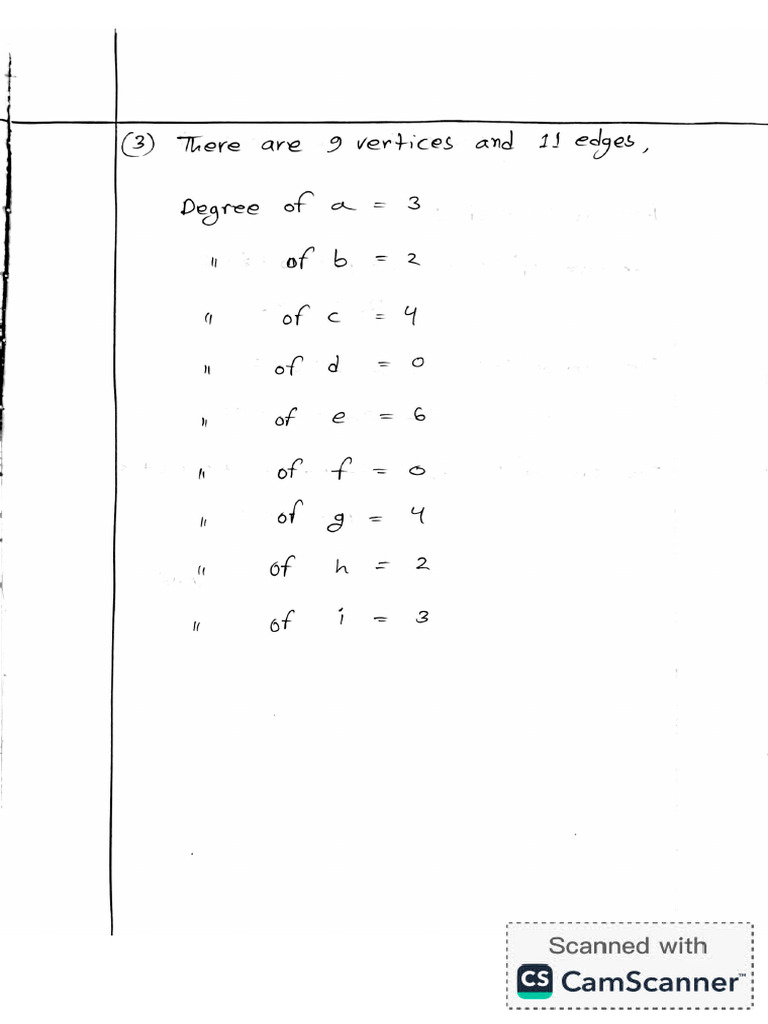 (3) There are 9 vertices and 11 edges,
Degree of a = 3
" of b = 2
" of c = 4
" of d = 0
" of e = 6
" of f = 0
" of g = 4
" of h = 2
" of i = 3
Scanned with
CS CamScanner™